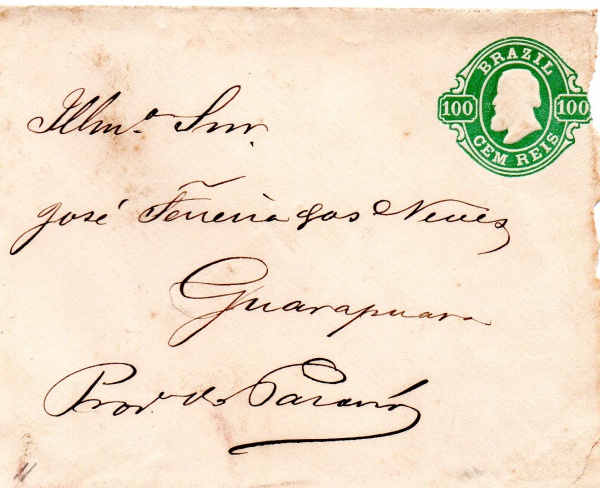 BRAZIL
100 100
CEM REIS
Illmo. Snr.
José Ferreira das Neves
Guarapuava
Prov. do Paraná